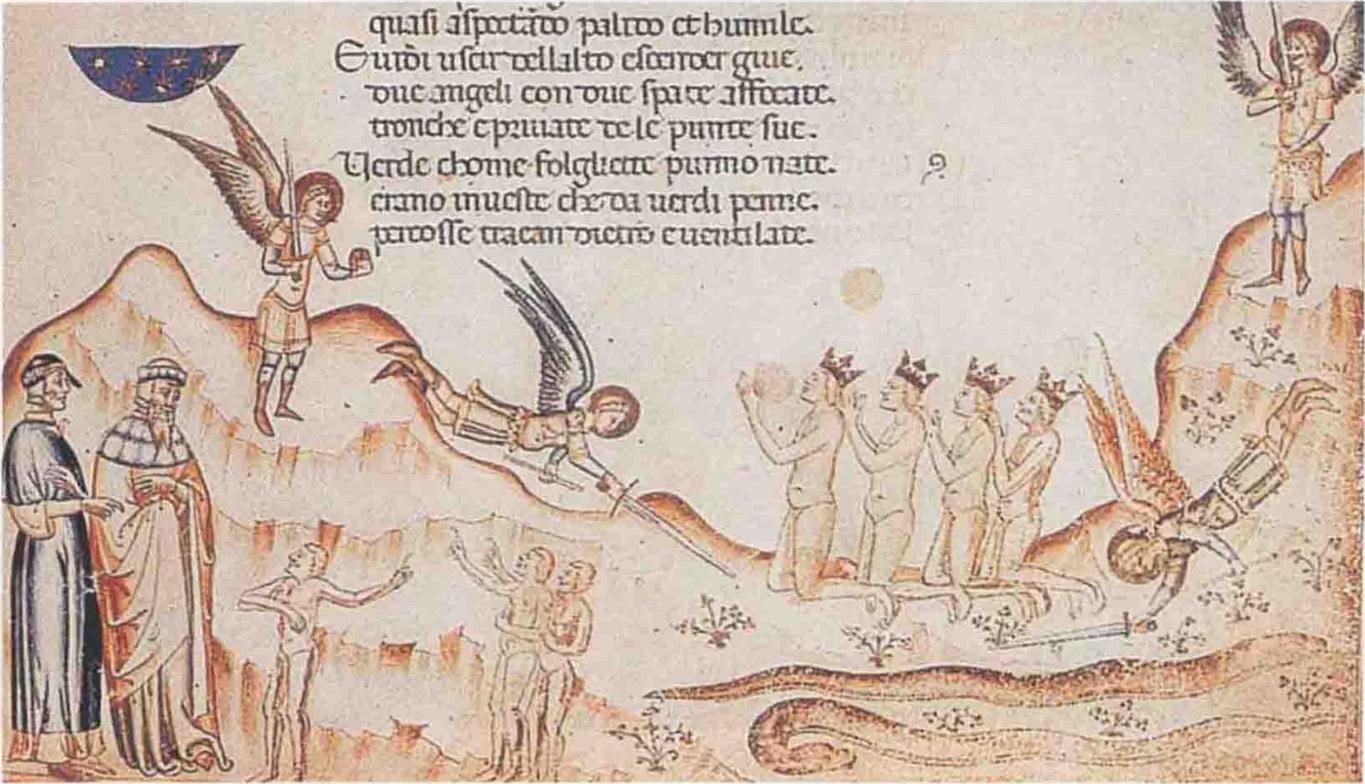 quasi aspectãdo palido et humile.
E uidi uscir dellalto escender giue.
due angeli con due spade affocate.
tronche epriuate de le punte sue.
Uerde chome folgliette purmo nate.
erano inueste che da uerdi penne.
percosse traean dietro e uentilate.